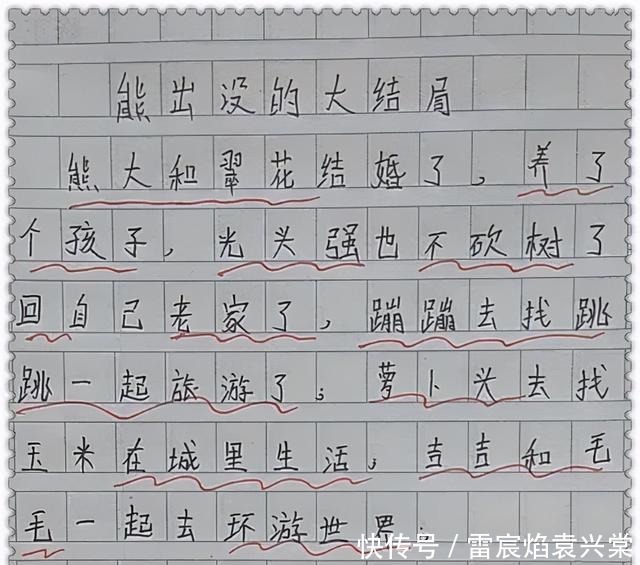 熊出没的大结局
熊大和翠花结婚了，养了
个孩子，光头强也不砍树了
回自己老家了，蹦蹦去找跳
跳一起旅游了；萝卜头去找
玉米在城里生活，吉吉和毛
毛一起去环游世界；
快传号／雷宸焰袁兴棠